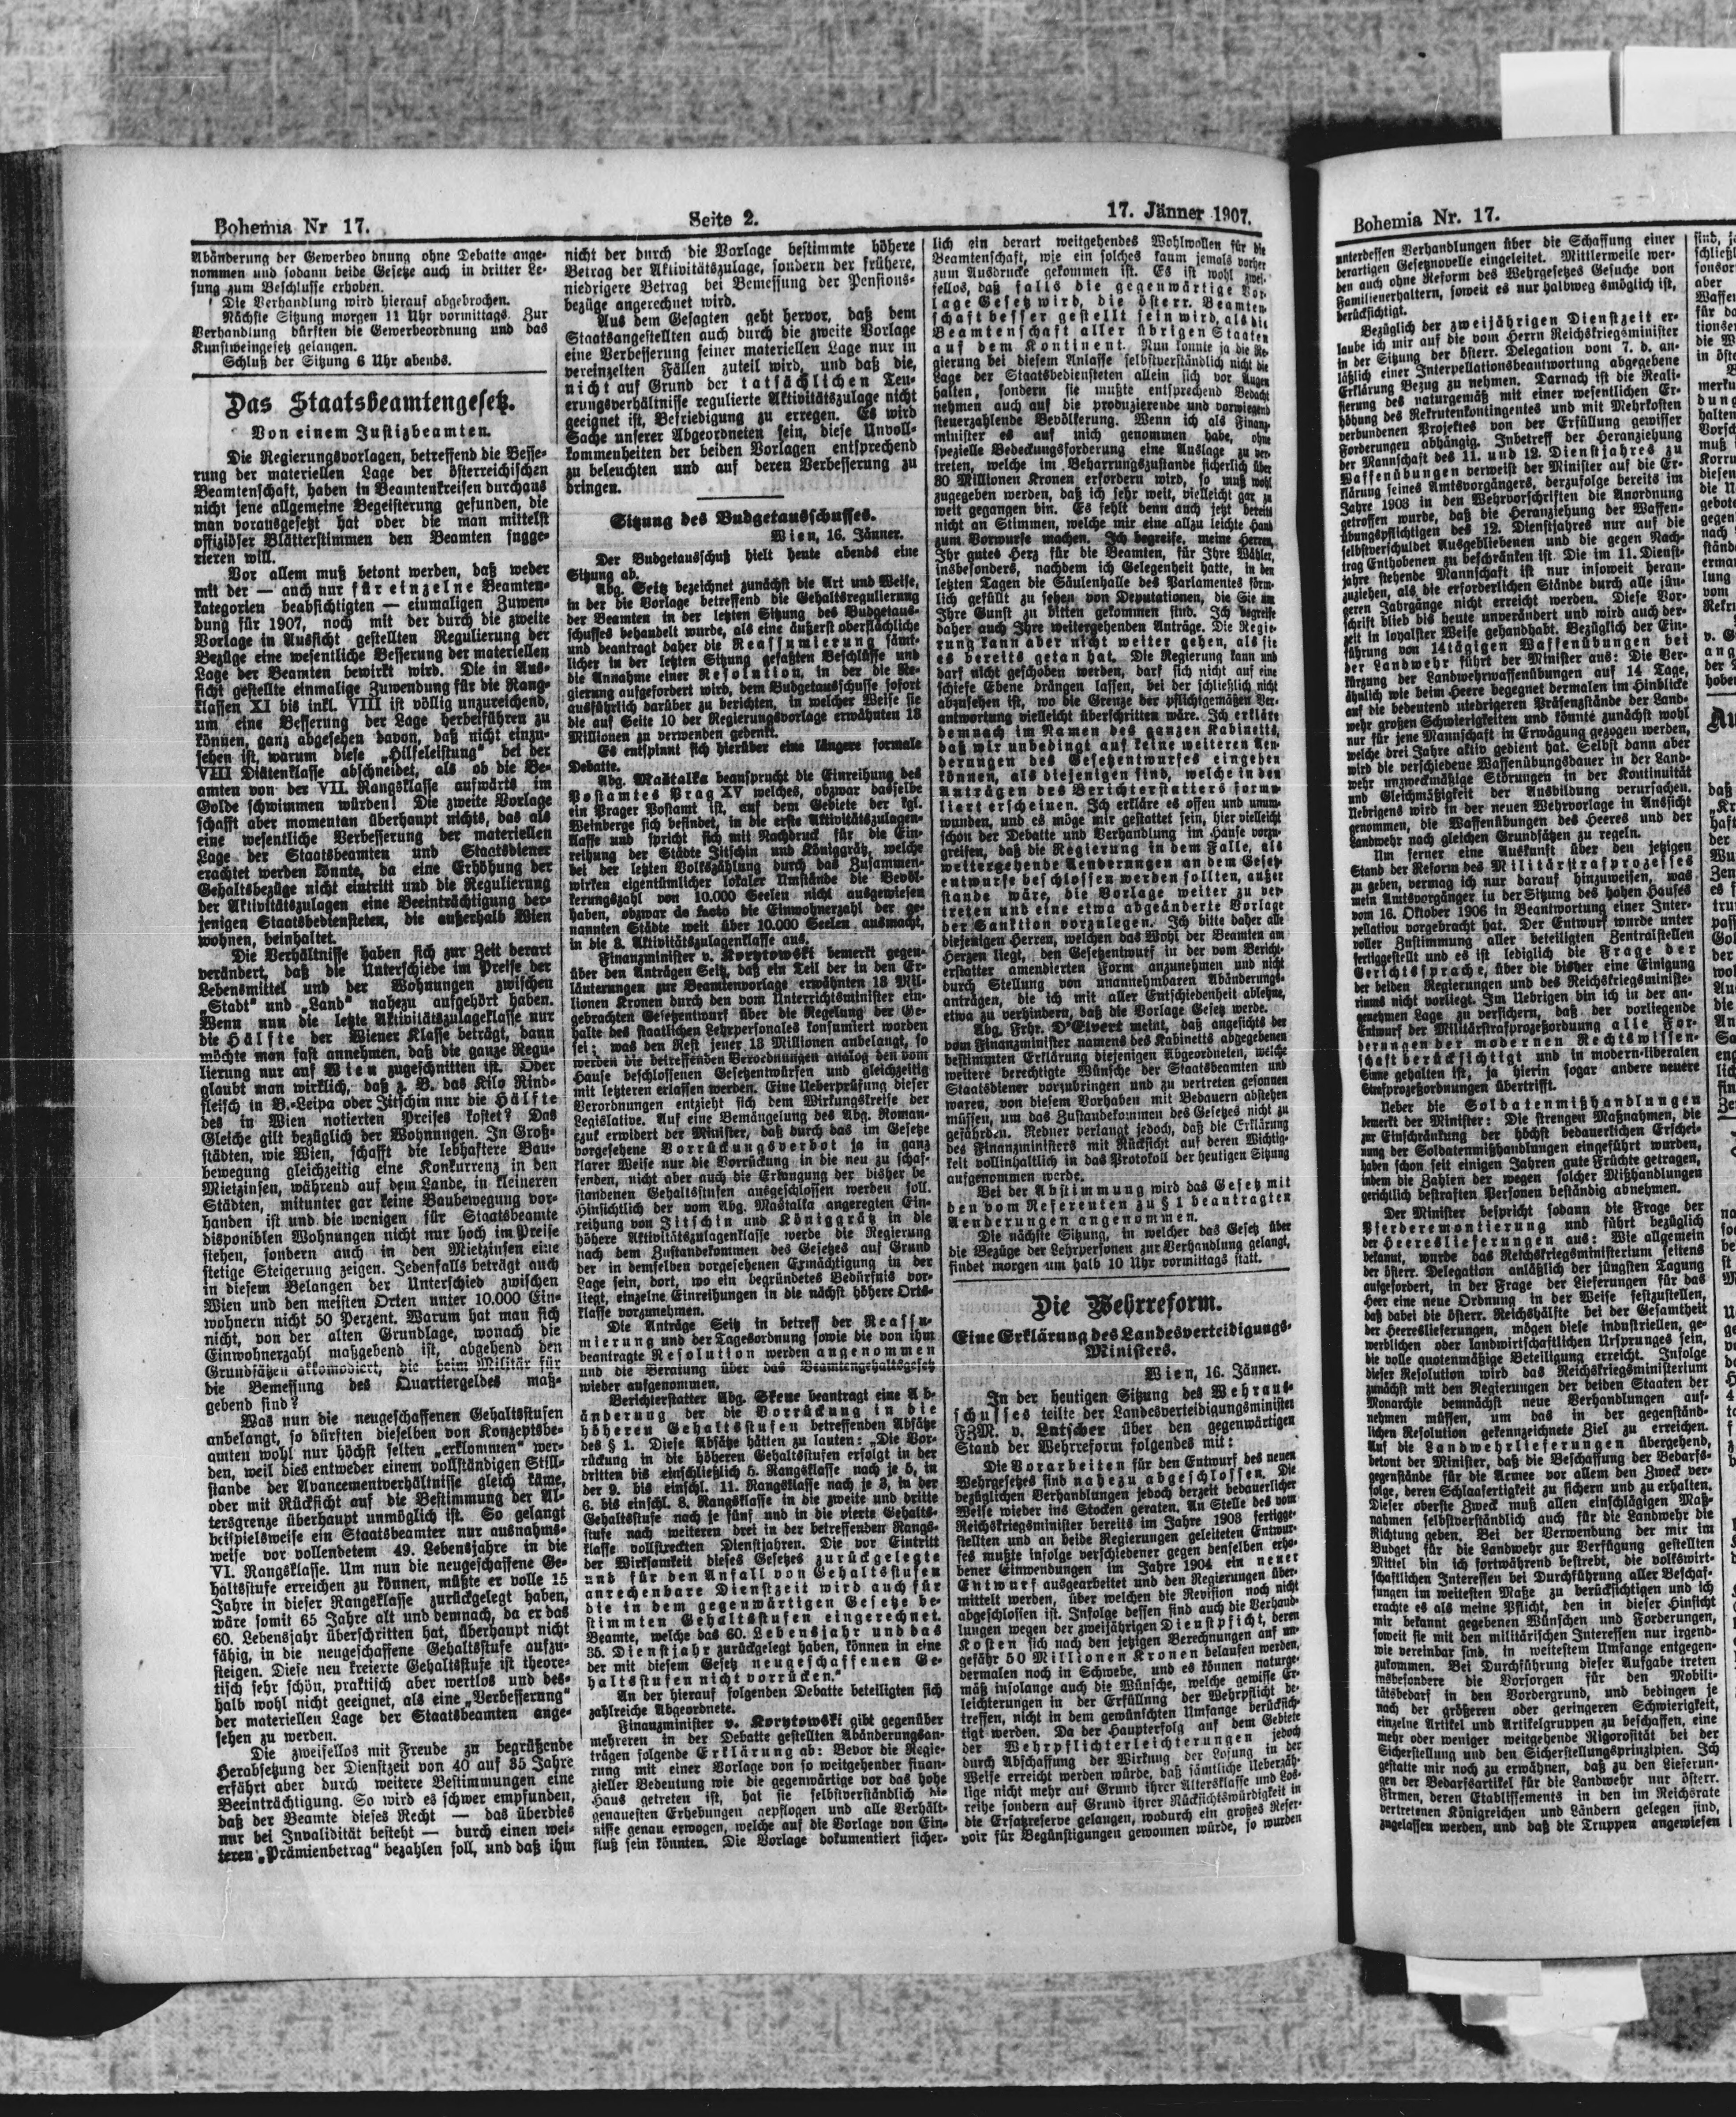 Bohemia Nr 17.
Seite 2.
17. Jänner 1907.
Abänderung der Gewerbeo dnung ohne Debatte ange-
nommen und sodann beide Gesetze auch in dritter Le-
sung zum Beschlusse erhoben.
Die Verhandlung wird hierauf abgebrochen.
Nächste Sitzung morgen 11 Uhr vormittags. Zur
Verhandlung dürften die Gewerbeordnung und das
Kunstweingesetz gelangen.
Schluß der Sitzung 6 Uhr abends.
Das Staatsbeamtengesetz.
Von einem Justizbeamten.
Die Regierungsvorlagen, betreffend die Besse-
rung der materiellen Lage der österreichischen
Beamtenschaft, haben in Beamtenkreisen durchaus
nicht jene allgemeine Begeisterung gefunden, die
man vorausgesetzt hat oder die man mittelst
offiziöser Blätterstimmen den Beamten sugge-
rieren will.
Vor allem muß betont werden, daß weder
mit der — auch nur für einzelne Beamten-
kategorien beabsichtigten — einmaligen Zuwen-
dung für 1907, noch mit der durch die zweite
Vorlage in Aussicht gestellten Regulierung der
Bezüge eine wesentliche Besserung der materiellen
Lage der Beamten bewirkt wird. Die in Aus-
sicht gestellte einmalige Zuwendung für die Rang-
klassen XI bis inkl. VIII ist völlig unzureichend,
um eine Besserung der Lage herbeiführen zu
können, ganz abgesehen davon, daß nicht einzu-
sehen ist, warum diese „Hilfeleistung“ bei der
VIII Diätenklasse abschneidet, als ob die Be-
amten von der VII. Rangsklasse aufwärts im
Golde schwimmen würden! Die zweite Vorlage
schafft aber momentan überhaupt nichts, das als
eine wesentliche Verbesserung der materiellen
Lage der Staatsbeamten und Staatsdiener
erachtet werden könnte, da eine Erhöhung der
Gehaltsbezüge nicht eintritt und die Regulierung
der Aktivitätszulagen eine Beeinträchtigung der-
jenigen Staatsbediensteten, die außerhalb Wien
wohnen, beinhaltet.
Die Verhältnisse haben sich zur Zeit derart
verändert, daß die Unterschiede im Preise der
Lebensmittel und der Wohnungen zwischen
„Stadt“ und „Land“ nahezu aufgehört haben.
Wenn nun die letzte Aktivitätszulageklasse nur
die Hälfte der Wiener Klasse beträgt, dann
möchte man fast annehmen, daß die ganze Regu-
lierung nur auf Wien zugeschnitten ist. Oder
glaubt man wirklich, daß z. B. das Kilo Rind-
fleisch in B.-Leipa oder Jitschin nur die Hälfte
des in Wien notierten Preises kostet? Das
Gleiche gilt bezüglich der Wohnungen. In Groß-
städten, wie Wien, schafft die lebhaftere Bau-
bewegung gleichzeitig eine Konkurrenz in den
Mietzinsen, während auf dem Lande, in kleineren
Städten, mitunter gar keine Baubewegung vor-
handen ist und die wenigen für Staatsbeamte
disponiblen Wohnungen nicht nur hoch im Preise
stehen, sondern auch in den Mietzinsen eine
stetige Steigerung zeigen. Jedenfalls beträgt auch
in diesem Belangen der Unterschied zwischen
Wien und den meisten Orten unter 10.000 Ein-
wohnern nicht 50 Perzent. Warum hat man sich
nicht, von der alten Grundlage, wonach die
Einwohnerzahl maßgebend ist, abgehend den
Grundsätzen akkomodiert, die beim Militär für
die Bemessung des Quartiergeldes maß-
gebend sind?
Was nun die neugeschaffenen Gehaltsstufen
anbelangt, so dürften dieselben von Konzeptsbe-
amten wohl nur höchst selten „erklommen“ wer-
den, weil dies entweder einem vollständigen Still-
stande der Avancementverhältnisse gleich käme,
oder mit Rücksicht auf die Bestimmung der Al-
tersgrenze überhaupt unmöglich ist. So gelangt
beispielsweise ein Staatsbeamter nur ausnahms-
weise vor vollendetem 49. Lebensjahre in die
VI. Rangsklasse. Um nun die neugeschaffene Ge-
haltsstufe erreichen zu können, müßte er volle 15
Jahre in dieser Rangsklasse zurückgelegt haben,
wäre somit 65 Jahre alt und demnach, da er das
60. Lebensjahr überschritten hat, überhaupt nicht
fähig, in die neugeschaffene Gehaltsstufe aufzu-
steigen. Diese neu kreierte Gehaltsstufe ist theore-
tisch sehr schön, praktisch aber wertlos und des-
halb wohl nicht geeignet, als eine „Verbesserung“
der materiellen Lage der Staatsbeamten ange-
sehen zu werden.
Die zweifellos mit Freude zu begrüßende
Herabsetzung der Dienstzeit von 40 auf 35 Jahre
erfährt aber durch weitere Bestimmungen eine
Beeinträchtigung. So wird es schwer empfunden,
daß der Beamte dieses Recht — das überdies
nur bei Invalidität besteht — durch einen wei-
teren „Prämienbetrag“ bezahlen soll, und daß ihm
nicht der durch die Vorlage bestimmte höhere
Betrag der Aktivitätszulage, sondern der frühere,
niedrigere Betrag bei Bemessung der Pensions-
bezüge angerechnet wird.
Aus dem Gesagten geht hervor, daß dem
Staatsangestellten auch durch die zweite Vorlage
eine Verbesserung seiner materiellen Lage nur in
vereinzelten Fällen zuteil wird, und daß die,
nicht auf Grund der tatsächlichen Teu-
erungsverhältnisse regulierte Aktivitätszulage nicht
geeignet ist, Befriedigung zu erregen. Es wird
Sache unserer Abgeordneten sein, diese Unvoll-
kommenheiten der beiden Vorlagen entsprechend
zu beleuchten und auf deren Verbesserung zu
bringen.
Sitzung des Budgetausschusses.
Wien, 16. Jänner.
Der Budgetausschuß hielt heute abends eine
Sitzung ab.
Abg. Seitz bezeichnet zunächst die Art und Weise,
in der die Vorlage betreffend die Gehaltsregulierung
der Beamten in der letzten Sitzung des Budgetaus-
schusses behandelt wurde, als eine äußerst oberflächliche
und beantragt daher die Reassumierung sämt-
licher in der letzten Sitzung gefaßten Beschlüsse und
die Annahme einer Resolution, in der die Re-
gierung aufgefordert wird, dem Budgetausschusse sofort
ausführlich darüber zu berichten, in welcher Weise sie
die auf Seite 10 der Regierungsvorlage erwähnten 18
Millionen zu verwenden gedenkt.
Es entspinnt sich hierüber eine längere formale
Debatte.
Abg. Maštalka beansprucht die Einreihung des
Postamtes Prag XV welches, obzwar dasselbe
ein Prager Postamt ist, auf dem Gebiete der kgl.
Weinberge sich befindet, in die erste Aktivitätszulagen-
klasse und spricht sich mit Nachdruck für die Ein-
reihung der Städte Jitschin und Königgrätz, welche
bei der letzten Volkszählung durch das Zusammen-
wirken eigentümlicher lokaler Umstände die Bevöl-
kerungszahl von 10.000 Seelen nicht ausgewiesen
haben, obzwar de facto die Einwohnerzahl der ge-
nannten Städte weit über 10.000 Seelen ausmacht,
in die 3. Aktivitätszulagenklasse aus.
Finanzminister v. Korytowski bemerkt gegen-
über den Anträgen Seitz, daß ein Teil der in den Er-
läuterungen zur Beamtenvorlage erwähnten 18 Mil-
lionen Kronen durch den vom Unterrichtsminister ein-
gebrachten Gesetzentwurf über die Regelung der Ge-
halte des staatlichen Lehrpersonales konsumiert worden
sei; was den Rest jener 13 Millionen anbelangt, so
werden die betreffenden Verordnungen analog den vom
Hause beschlossenen Gesetzentwürfen und gleichzeitig
mit letzteren erlassen werden. Eine Ueberprüfung dieser
Verordnungen entzieht sich dem Wirkungskreise der
Legislative. Auf eine Bemängelung des Abg. Roman-
czuk erwidert der Minister, daß durch das im Gesetze
vorgesehene Vorrückungsverbot ja in ganz
klarer Weise nur die Vorrückung in die neu zu schaf-
fenden, nicht aber auch die Erlangung der bisher be
standenen Gehaltsstufen ausgeschlossen werden soll.
Hinsichtlich der vom Abg. Maštalka angeregten Ein-
reihung von Jitschin und Königgrätz in die
höhere Aktivitätszulagenklasse werde die Regierung
nach dem Zustandekommen des Gesetzes auf Grund
der in demselben vorgesehenen Ermächtigung in der
Lage sein, dort, wo ein begründetes Bedürfnis vor-
liegt, einzelne Einreihungen in die nächst höhere Orts-
klasse vorzunehmen.
Die Anträge Seitz in betreff der Reassu-
mierung und der Tagesordnung sowie die von ihm
beantragte Resolution werden angenommen
und die Beratung über das Beamtengehaltsgesetz
wieder aufgenommen.
Berichterstatter Abg. Skene beantragt eine Ab-
änderung der die Vorrückung in die
höheren Gehaltsstufen betreffenden Absätze
des § 1. Diese Absätze hätten zu lauten: „Die Vor-
rückung in die höheren Gehaltsstufen erfolgt in der
dritten bis einschließlich 5. Rangsklasse nach je 5, in
der 9. bis einschl. 11. Rangsklasse nach je 3, in der
6. bis einschl. 8. Rangsklasse in die zweite und dritte
Gehaltsstufe nach je fünf und in die vierte Gehalts-
stufe nach weiteren drei in der betreffenden Rangs-
klasse vollstreckten Dienstjahren. Die vor Eintritt
der Wirksamkeit dieses Gesetzes zurückgelegte
und für den Anfall von Gehaltsstufen
anrechenbare Dienstzeit wird auch für
die in dem gegenwärtigen Gesetze be-
stimmten Gehaltsstufen eingerechnet.
Beamte, welche das 60. Lebensjahr und das
35. Dienstjahr zurückgelegt haben, können in eine
der mit diesem Gesetz neugeschaffenen Ge-
haltsstufen nicht vorrücken.“
An der hierauf folgenden Debatte beteiligten sich
zahlreiche Abgeordnete.
Finanzminister v. Korytowski gibt gegenüber
mehreren in der Debatte gestellten Abänderungsan-
trägen folgende Erklärung ab: Bevor die Regie-
rung mit einer Vorlage von so weitgehender finan-
zieller Bedeutung wie die gegenwärtige vor das hohe
Haus getreten ist, hat sie selbstverständlich die
genauesten Erhebungen gepflogen und alle Verhält-
nisse genau erwogen, welche auf die Vorlage von Ein-
fluß sein könnten. Die Vorlage dokumentiert sicher-
lich ein derart weitgehendes Wohlwollen für die
Beamtenschaft, wie ein solches kaum jemals vorher
zum Ausdrucke gekommen ist. Es ist wohl zwei-
fellos, daß falls die gegenwärtige Vor-
lage Gesetz wird, die österr. Beamten-
schaft besser gestellt sein wird, als die
Beamtenschaft aller übrigen Staaten
auf dem Kontinent. Nun konnte ja die Re-
gierung bei diesem Anlasse selbstverständlich nicht die
Lage der Staatsbediensteten allein sich vor Augen
halten, sondern sie mußte entsprechend Bedacht
nehmen auch auf die produzierende und vorwiegend
steuerzahlende Bevölkerung. Wenn ich als Finanz-
minister es auf mich genommen habe, ohne
spezielle Bedeckungsforderung eine Auslage zu ver-
treten, welche im Beharrungszustande sicherlich über
30 Millionen Kronen erfordern wird, so muß wohl
zugegeben werden, daß ich sehr weit, vielleicht gar zu
weit gegangen bin. Es fehlt denn auch jetzt bereits
nicht an Stimmen, welche mir eine allzu leichte Hand
zum Vorwurfe machen. Ich begreife, meine Herren,
Ihr gutes Herz für die Beamten, für Ihre Wähler,
insbesonders, nachdem ich Gelegenheit hatte, in den
letzten Tagen die Säulenhalle des Parlamentes förm-
lich gefüllt zu sehen von Deputationen, die Sie um
Ihre Gunst zu bitten gekommen sind. Ich begreife
daher auch Ihre weitergehenden Anträge. Die Regie-
rung kann aber nicht weiter gehen, als sie
es bereits getan hat. Die Regierung kann und
darf nicht geschoben werden, darf sich nicht auf eine
schiefe Ebene drängen lassen, bei der schließlich nicht
abzusehen ist, wo die Grenze der pflichtgemäßen Ver-
antwortung vielleicht überschritten wäre. Ich erkläre
demnach im Namen des ganzen Kabinetts,
daß wir unbedingt auf keine weiteren Aen-
derungen des Gesetzentwurfes eingehen
können, als diejenigen sind, welche in den
Anträgen des Berichterstatters formu-
liert erscheinen. Ich erkläre es offen und unum-
wunden, und es möge mir gestattet sein, hier vielleicht
schon der Debatte und Verhandlung im Hause vorzu-
greifen, daß die Regierung in dem Falle, als
weitergehende Aenderungen an dem Gesetz-
entwurfe beschlossen werden sollten, außer
stande wäre, die Vorlage weiter zu ver-
treten und eine etwa abgeänderte Vorlage
der Sanktion vorzulegen. Ich bitte daher alle
diejenigen Herren, welchen das Wohl der Beamten am
Herzen liegt, den Gesetzentwurf in der vom Bericht-
erstatter amendierten Form anzunehmen und nicht
durch Stellung von unannehmbaren Abänderungs-
anträgen, die ich mit aller Entschiedenheit ablehne,
etwa zu verhindern, daß die Vorlage Gesetz werde.
Abg. Frhr. D'Elvert meint, daß angesichts der
vom Finanzminister namens des Kabinetts abgegebenen
bestimmten Erklärung diejenigen Abgeordneten, welche
weitere berechtigte Wünsche der Staatsbeamten und
Staatsdiener vorzubringen und zu vertreten gesonnen
waren, von diesem Vorhaben mit Bedauern abstehen
müssen, um das Zustandekommen des Gesetzes nicht zu
gefährden. Redner verlangt jedoch, daß die Erklärung
des Finanzministers mit Rücksicht auf deren Wichtig-
keit vollinhaltlich in das Protokoll der heutigen Sitzung
aufgenommen werde.
Bei der Abstimmung wird das Gesetz mit
den vom Referenten zu § 1 beantragten
Aenderungen angenommen.
Die nächste Sitzung, in welcher das Gesetz über
die Bezüge der Lehrpersonen zur Verhandlung gelangt,
findet morgen um halb 10 Uhr vormittags statt.
Die Wehrreform.
Eine Erklärung des Landesverteidigungs-
Ministers.
Wien, 16. Jänner.
In der heutigen Sitzung des Wehraus-
schusses teilte der Landesverteidigungsminister
FZM. v. Latscher über den gegenwärtigen
Stand der Wehrreform folgendes mit:
Die Vorarbeiten für den Entwurf des neuen
Wehrgesetzes sind nahezu abgeschlossen. Die
bezüglichen Verhandlungen jedoch derzeit bedauerlicher
Weise wieder ins Stocken geraten. An Stelle des vom
Reichskriegsminister bereits im Jahre 1903 fertigge-
stellten und an beide Regierungen geleiteten Entwur-
fes mußte infolge verschiedener gegen denselben erho-
bener Einwendungen im Jahre 1904 ein neuer
Entwurf ausgearbeitet und den Regierungen über-
mittelt werden, über welchen die Revision noch nicht
abgeschlossen ist. Infolge dessen sind auch die Verhand-
lungen wegen der zweijährigen Dienstpflicht, deren
Kosten sich nach den jetzigen Berechnungen auf un-
gefähr 50 Millionen Kronen belaufen werden,
dermalen noch in Schwebe, und es können naturge-
mäß insolange auch die Wünsche, welche gewisse Er-
leichterungen in der Erfüllung der Wehrpflicht be-
treffen, nicht in dem gewünschten Umfange berücksich-
tigt werden. Da der Haupterfolg auf dem Gebiete
der Wehrpflichterleichterungen jedoch
durch Abschaffung der Wirkung der Losung in der
Weise erreicht werden würde, daß sämtliche Ueberzäh-
lige nicht mehr auf Grund ihrer Altersklasse und Los-
reihe sondern auf Grund ihrer Rücksichtswürdigkeit in
die Ersatzreserve gelangen, wodurch ein großes Reser-
voir für Begünstigungen gewonnen würde, so wurden
Bohemia Nr. 17.
unterdessen Verhandlungen über die Schaffung einer
derartigen Gesetznovelle eingeleitet. Mittlerweile wer-
den auch ohne Reform des Wehrgesetzes Gesuche von
Familienerhaltern, soweit es nur halbweg smöglich ist,
berücksichtigt.
Bezüglich der zweijährigen Dienstzeit er-
laube ich mir auf die vom Herrn Reichskriegsminister
in der Sitzung der österr. Delegation vom 7. d. an-
läßlich einer Interpellationsbeantwortung abgegebene
Erklärung Bezug zu nehmen. Darnach ist die Reali-
sierung des naturgemäß mit einer wesentlichen Er-
höhung des Rekrutenkontingentes und mit Mehrkosten
verbundenen Projektes von der Erfüllung gewisser
Forderungen abhängig. Inbetreff der Heranziehung
der Mannschaft des 11. und 12. Dienstjahres zu
Waffenübungen verweist der Minister auf die Er-
klärung seines Amtsvorgängers, derzufolge bereits im
Jahre 1903 in den Wehrvorschriften die Anordnung
getroffen wurde, daß die Heranziehung der Waffen-
übungspflichtigen des 12. Dienstjahres nur auf die
selbstverschuldet Ausgebliebenen und die gegen Nach-
trag Enthobenen zu beschränken ist. Die im 11. Dienst-
jahre stehende Mannschaft ist nur insoweit heran-
zuziehen, als die erforderlichen Stände durch alle jün-
geren Jahrgänge nicht erreicht werden. Diese Vor-
schrift blieb bis heute unverändert und wird auch der-
zeit in loyalster Weise gehandhabt. Bezüglich der Ein-
führung von 14tägigen Waffenübungen bei
der Landwehr führt der Minister aus: Die Ver-
kürzung der Landwehrwaffenübungen auf 14 Tage,
ähnlich wie beim Heere begegnet dermalen im Hinblicke
auf die bedeutend niedrigeren Präsenzstände der Land-
wehr großen Schwierigkeiten und könnte zunächst wohl
nur für jene Mannschaft in Erwägung gezogen werden,
welche drei Jahre aktiv gedient hat. Selbst dann aber
wird die verschiedene Waffenübungsdauer in der Land-
wehr unzweckmäßige Störungen in der Kontinuität
und Gleichmäßigkeit der Ausbildung verursachen.
Uebrigens wird in der neuen Wehrvorlage in Aussicht
genommen, die Waffenübungen des Heeres und der
Landwehr nach gleichen Grundsätzen zu regeln.
Um ferner eine Auskunft über den jetzigen
Stand der Reform des Militärstrafprozesses
zu geben, vermag ich nur darauf hinzuweisen, was
mein Amtsvorgänger in der Sitzung des hohen Hauses
vom 16. Oktober 1906 in Beantwortung einer Inter-
pellation vorgebracht hat. Der Entwurf wurde unter
voller Zustimmung aller beteiligten Zentralstellen
fertiggestellt und es ist lediglich die Frage der
Gerichtssprache, über die bisher eine Einigung
der beiden Regierungen und des Reichskriegsministe-
riums nicht vorliegt. Im Uebrigen bin ich in der an-
genehmen Lage zu versichern, daß der vorliegende
Entwurf der Militärstrafprozeßordnung alle For-
derungen der modernen Rechtswissen-
schaft berücksichtigt und in modern-liberalen
Sinne gehalten ist, ja hierin sogar andere neuere
Strafprozeßordnungen übertrifft.
Ueber die Soldatenmißhandlungen
bemerkt der Minister: Die strengen Maßnahmen, die
zur Einschränkung der höchst bedauerlichen Erschei-
nung der Soldatenmißhandlungen eingeführt wurden,
haben schon seit einigen Jahren gute Früchte getragen,
indem die Zahlen der wegen solcher Mißhandlungen
gerichtlich bestraften Personen beständig abnehmen.
Der Minister bespricht sodann die Frage der
Pferderemontierung und führt bezüglich
der Heereslieferungen aus: Wie allgemein
bekannt, wurde das Reichskriegsministerium seitens
der österr. Delegation anläßlich der jüngsten Tagung
aufgefordert, in der Frage der Lieferungen für das
Heer eine neue Ordnung in der Weise festzustellen,
daß dabei die österr. Reichshälfte bei der Gesamtheit
der Heereslieferungen, mögen diese industriellen, ge-
werblichen oder landwirtschaftlichen Ursprunges sein,
die volle quotenmäßige Beteiligung erreicht. Infolge
dieser Resolution wird das Reichskriegsministerium
zunächst mit den Regierungen der beiden Staaten der
Monarchie demnächst neue Verhandlungen auf-
nehmen müssen, um das in der gegenständ-
lichen Resolution gekennzeichnete Ziel zu erreichen.
Auf die Landwehrlieferungen übergehend,
betont der Minister, daß die Beschaffung der Bedarfs-
gegenstände für die Armee vor allem den Zweck ver-
folge, deren Schlagfertigkeit zu sichern und zu erhalten.
Dieser oberste Zweck muß allen einschlägigen Maß-
nahmen selbstverständlich auch für die Landwehr die
Richtung geben. Bei der Verwendung der mir im
Budget für die Landwehr zur Verfügung gestellten
Mittel bin ich fortwährend bestrebt, die volkswirt-
schaftlichen Interessen bei Durchführung aller Beschaf-
fungen im weitesten Maße zu berücksichtigen und ich
erachte es als meine Pflicht, den in dieser Hinsicht
mir bekannt gegebenen Wünschen und Forderungen,
soweit sie mit den militärischen Interessen nur irgend-
wie vereinbar sind, in weitestem Umfange entgegen-
zukommen. Bei Durchführung dieser Aufgabe treten
insbesondere die Vorsorgen für den Mobili-
tätsbedarf in den Vordergrund, und bedingen je
nach der größeren oder geringeren Schwierigkeit,
einzelne Artikel und Artikelgruppen zu beschaffen, eine
mehr oder weniger weitgehende Rigorosität bei der
Sicherstellung und den Sicherstellungsprinzipien. Ich
gestatte mir noch zu erwähnen, daß zu den Lieferun-
gen der Bedarfsartikel für die Landwehr nur österr.
Firmen, deren Etablissements in den im Reichsrate
vertretenen Königreichen und Ländern gelegen sind,
zugelassen werden, und daß die Truppen angewiesen